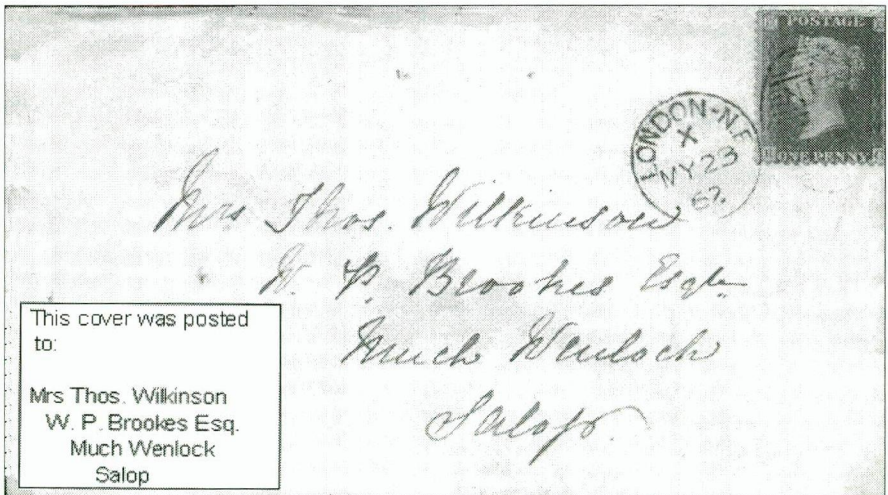 POSTAGE
ONE PENNY
LONDON-N.E
X
MY 23
62
Mrs Thos. Wilkinson
W. P. Brookes Esqre
Much Wenlock
Salop.
This cover was posted
to:
Mrs Thos. Wilkinson
W. P. Brookes Esq.
Much Wenlock
Salop